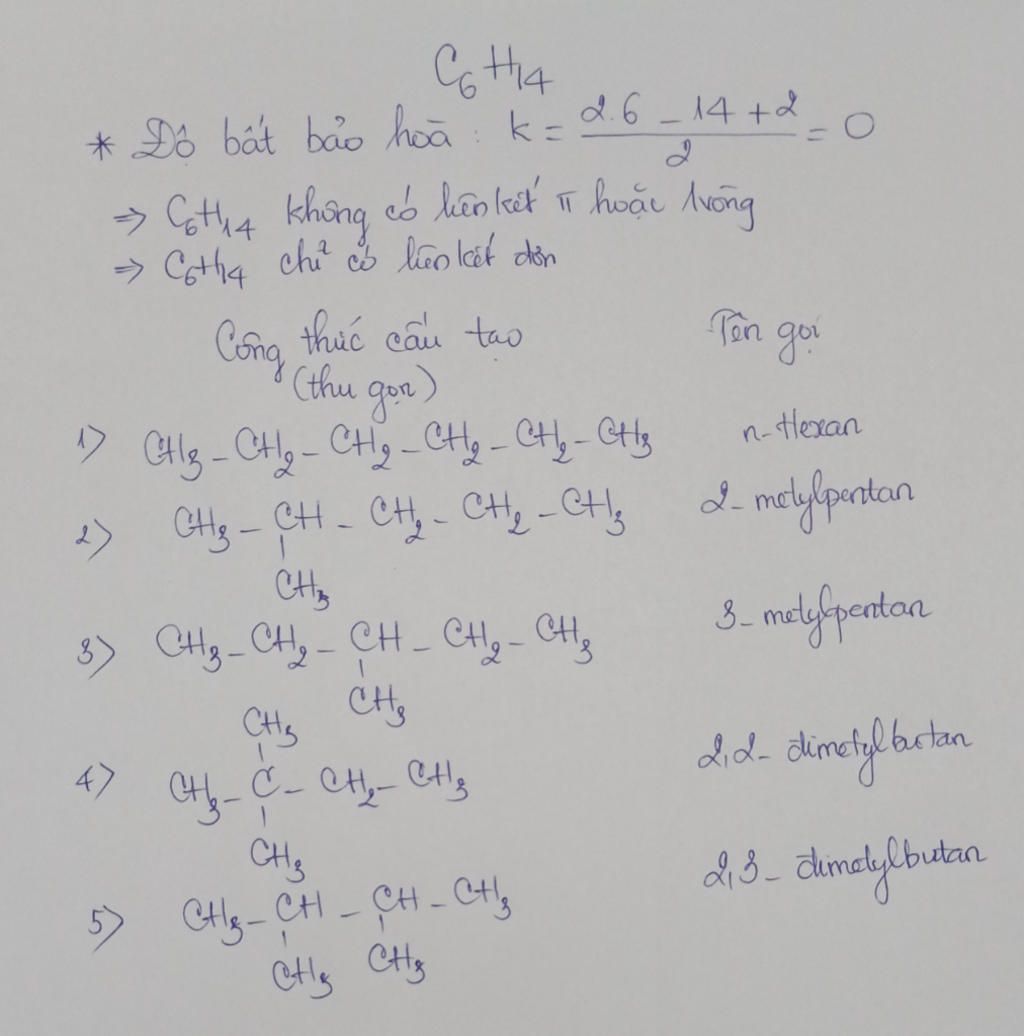 C₆H₁₄
* Độ bất bảo hoà : k = (2.6 - 14 + 2)/2 = 0
⇒ C₆H₁₄ không có liên kết π hoặc vòng
⇒ C₆H₁₄ chỉ có liên kết đơn
Công thức cấu tạo Tên gọi
(thu gọn)
1) CH₃-CH₂-CH₂-CH₂-CH₂-CH₃ n-Hexan
2) CH₃-CH-CH₂-CH₂-CH₃ 2-metylpentan
CH₃
3) CH₃-CH₂-CH-CH₂-CH₃ 3-metylpentan
CH₃
CH₃
4) CH₃-C-CH₂-CH₃ 2,2-dimetylbutan
CH₃
5) CH₃-CH-CH-CH₃ 2,3-dimetylbutan
CH₃ CH₃